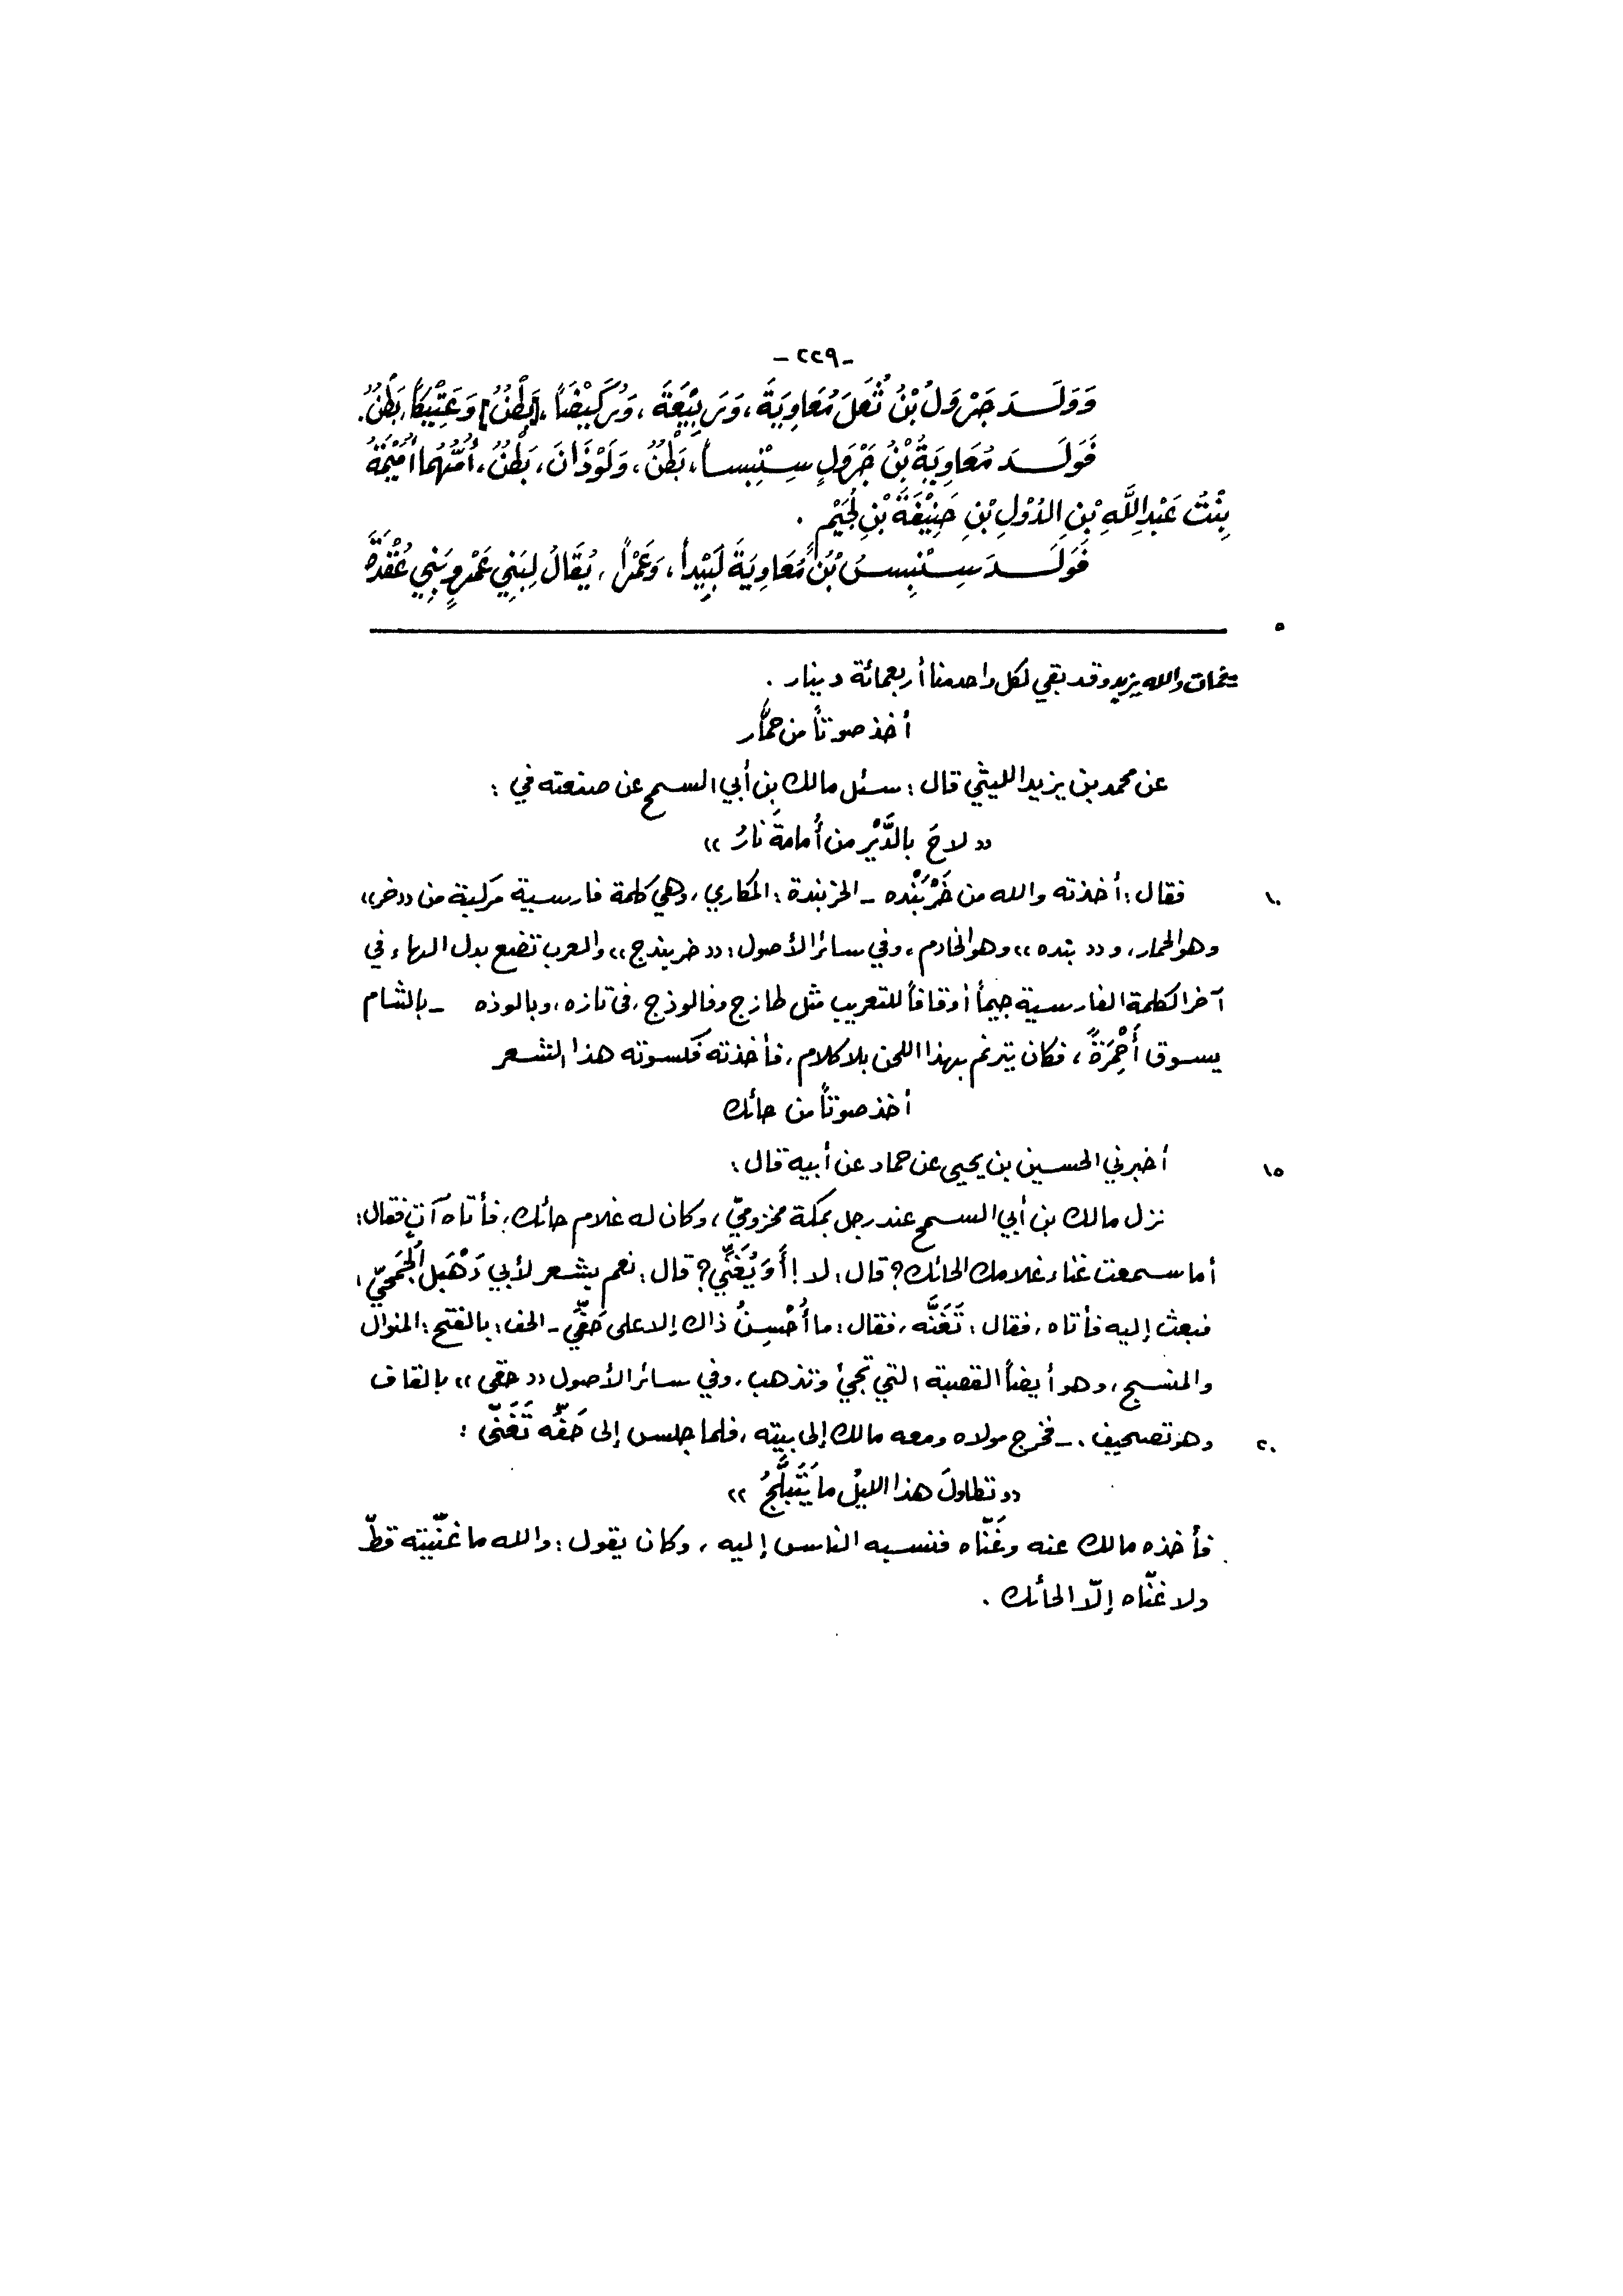 -٢٢٩-
وَوَلَدَ جَرْوَلُ بْنُ ثُعَلَ مُعَاوِيَةَ، وَرَبِيْعَةَ، وَرُكَيْضَاً، [بَطْنٌ] وَعَتِيْكَاً، بَطْنٌ.
فَوَلَدَ مُعَاوِيَةُ بْنُ جَرْوَلٍ سِنْبِساً، بَطْنٌ، وَلَوْذَانَ، بَطْنٌ، أُمُّهُمَا أُمَيْمَةُ
بِنْتُ عَبْدِ اللَّهِ بْنِ الدُّوْلِ بْنِ حَنِيْفَةَ بْنِ لُجَيْمٍ.
فَوَلَدَ سِنْبِسُ بْنُ مُعَاوِيَةَ لَبِيْداً، وَعَمْراً، يُقَالُ لِبَنِي عَمْرٍو بَنِي عُقْدَةَ
٥
= فمات والله يزيد وقد بقي لكل واحد منا أربعمائة دينار.
أخذ صوتاً من حمَّار
عن محمد بن يزيد الليثي قال: سئل مالك بن أبي السمح عن صنعته في:
«لاحَ بالدَّيْرِ من أُمامةَ نارُ»
١٠ فقال: أخذته والله من خَرْبَنْده - الخربندة: المكاري، وهي كلمة فارسية مركبة من «خر»
وهو الحمار، و«بنده» وهو الخادم، وفي سائر الأصول: «خربندج» والعرب تضع بدل الهاء في
آخر الكلمة الفارسية جيماً أو قافاً للتعريب مثل طازج وفالوذج، في تازه، وبالوذه - بالشام
يسوق أَحْمِرَةً، فكان يترنم بهذا اللحن بلا كلام، فأخذته فكسوته هذا الشعر
أخذ صوتاً من حائك
١٥ أخبرني الحسين بن يحيى عن حماد عن أبيه قال:
نزل مالك بن أبي السمح عند رجل بمكة مخزوميّ، وكان له غلام حائك، فأتاه آتٍ فقال:
أما سمعت غناء غلامك الحائك؟ قال: لا! أَوَ يُغَنِّي؟ قال: نعم بشعر لأبي دَهْبَل الجُمَحيّ،
فبعث إليه فأتاه، فقال: تَغَنَّه، فقال: ما أُحْسِنُ ذاك إلا على حَفِّي - الحف: بالفتح: المنوال
والمنسج، وهو أيضاً القصبة التي تجيُ وتذهب، وفي سائر الأصول «حقي» بالقاف
٢٠ وهو تصحيف. - فخرج مولاه ومعه مالك إلى بيته، فلما جلس إلى حَفِّه تَغَنّى:
«تطاولَ هذا الليلُ ما يَتَبَلَّجُ»
فأخذه مالك عنه وغَنّاه فنسبه الناس إليه، وكان يقول: والله ما غنّيته قطّ
ولا غنّاه إلّا الحائك.